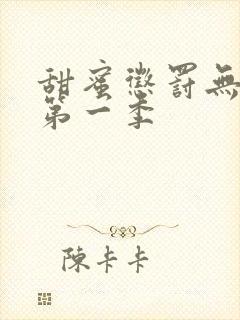 甜蜜懲罰無
第一季
陳卡卡